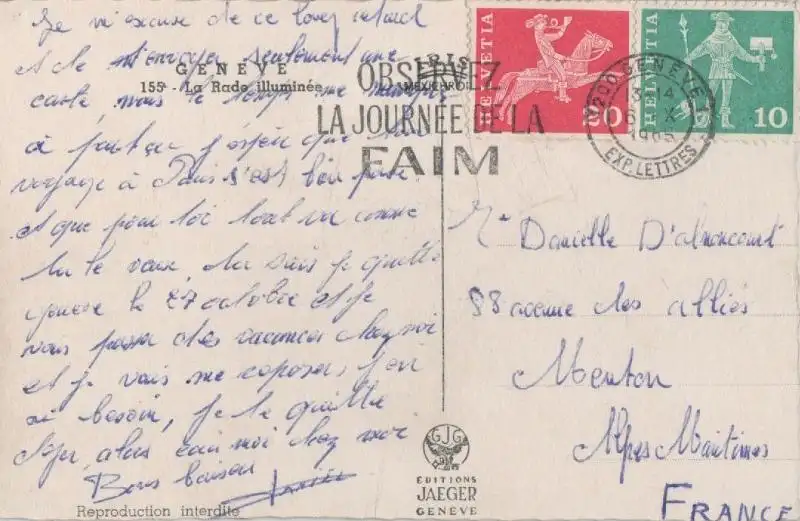 Je m'excuse de ce long retard
et de t'envoyer seulement une
carte, mais le temps me manque
à part ça j'espère que ton
voyage à Paris s'est bien passé
et que pour toi tout va comme
tu le veux, tu sais je quitte
Genève le 27 octobre et je
vais passer des vacances chez moi
et je vais me reposer j'en
ai besoin, je te quitte
alors moi chez moi
Bons baisers
GENÈVE
155ª - La Rade illuminée
IRIS
MEXICHROM
Reproduction interdite
OBSERVEZ
LA JOURNÉE DE LA
FAIM
HELVETIA
20
HELVETIA
10
1200 GENÈVE 1
EXP. LETTRES
Danielle D'alnoncourt
88 avenue des alliés
Menton
Alpes Maritimes
FRANCE
GJG
ÉDITIONS
JAEGER
GENÈVE